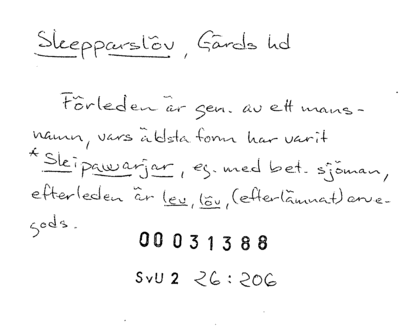 Skepparslöv, Gärds hd
Förleden är gen. av ett mans-
namn, vars äldsta form har varit
*Skipawarjar, eg. med bet. sjöman,
efterleden är lev, löv, (efterlämnat) arve-
gods.
00031388
SvU 2 26:206